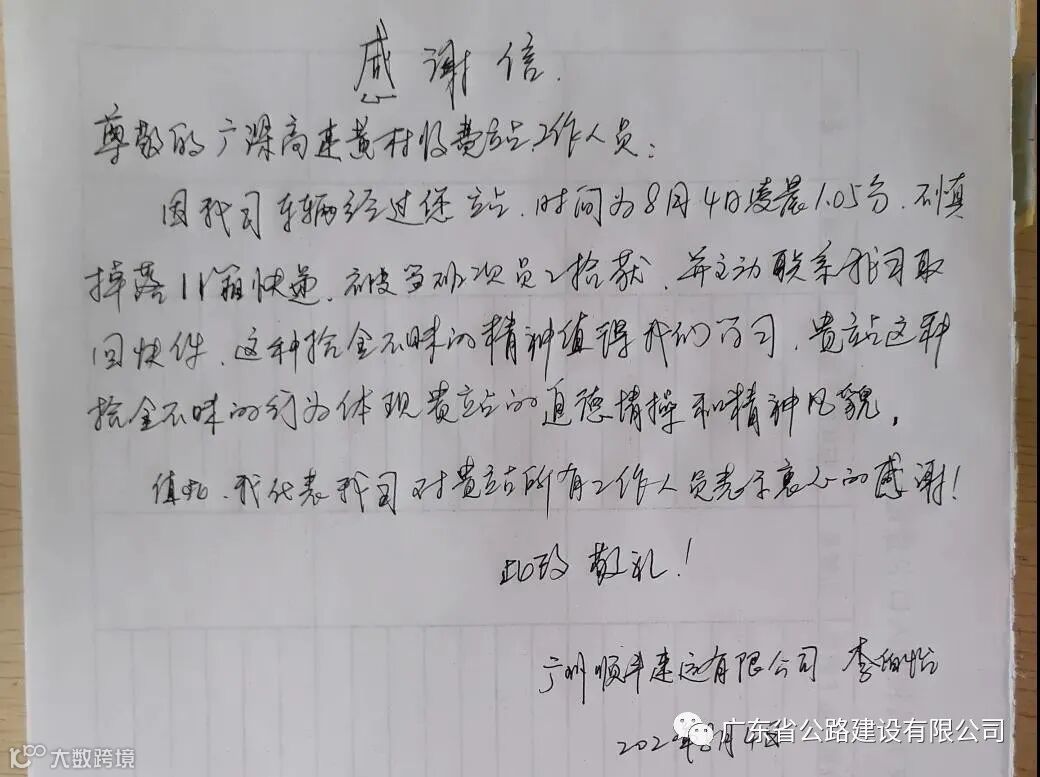 感谢信.
尊敬的广深高速黄村收费站工作人员：
因我司车辆经过您站，时间为8月4日凌晨1.05分，不慎
掉落11箱快递，被当班次员工拾获，并主动联系我司取
回快件，这种拾金不昧的精神值得我们公司，贵站这种
拾金不昧的行为体现贵站的道德情操和精神风貌，
值此，我代表我司对贵站所有工作人员表示衷心的感谢！
此致 敬礼！
广州顺丰速运有限公司 李伯怡
8月4日
广东省公路建设有限公司
大数跨境